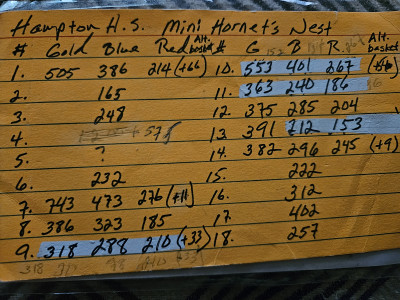 Hampton H.S. Mini Hornet's Nest
# Gold Blue Red Alt. basket # G B R. Alt. basket
1. 505 386 214 (+66) 10. 553 401 267
2. 165 11. 363 240 186
3. 248 12. 375 285 204
4. 575 13. 391 212 153
5. ? 14. 382 296 245 (+9)
6. 232 15. 222
7. 743 473 276 (+11) 16. 312
8. 386 323 185 17. 402
9. 318 288 210 (+33) 18. 257
318